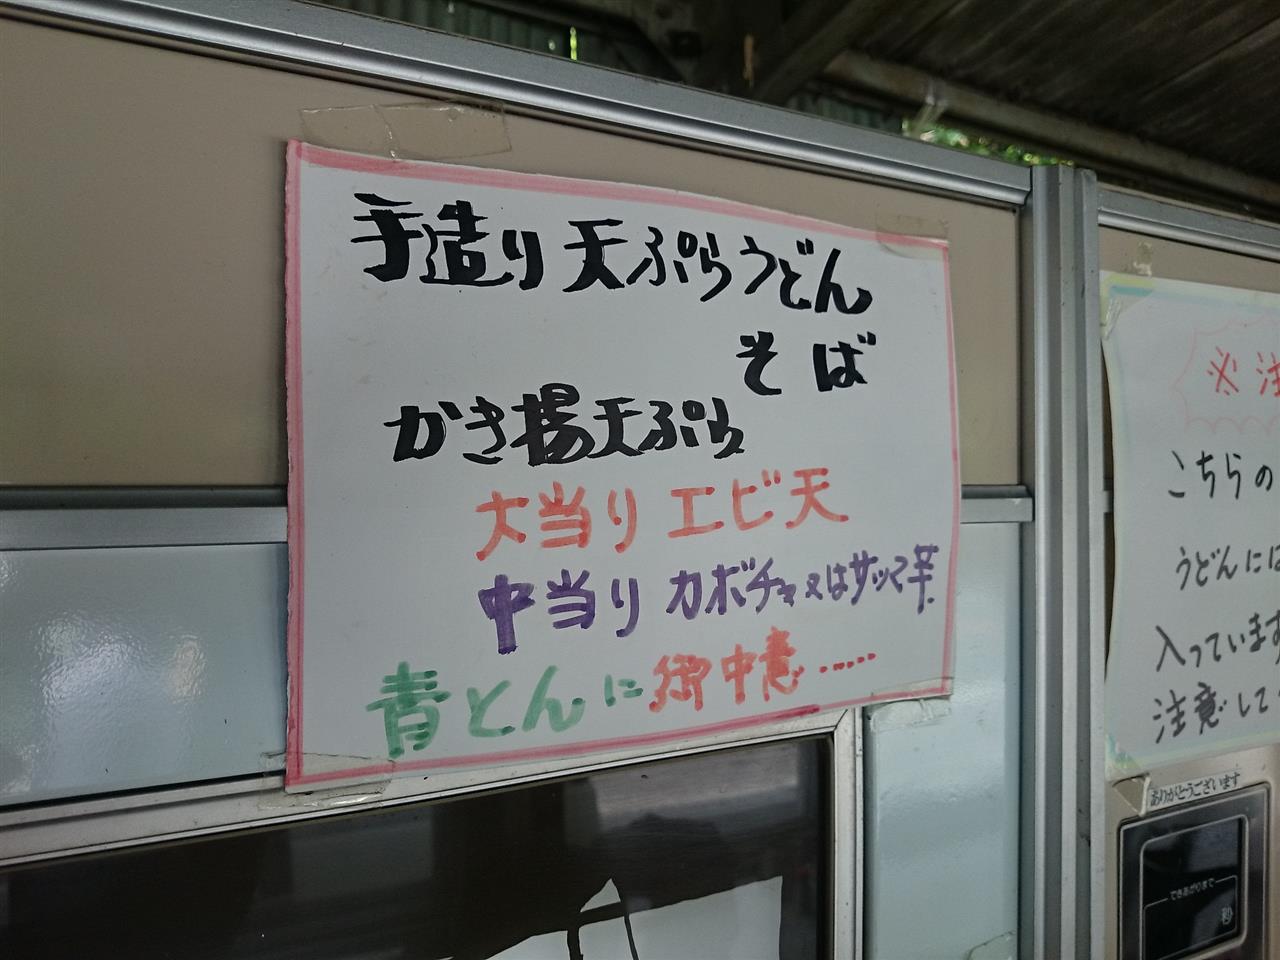 手造り天ぷらうどん
そば
かき揚天ぷら
大当り エビ天
中当り カボチャ又はサツマ芋
青とんに御中意……
※注
こちらの
うどんには
入っています
注意して
ありがとうございます
できあがりまで
秒